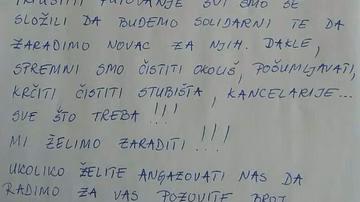 PUTOVANJE SVI SMO SE
SLOŽILI DA BUDEMO SOLIDARNI TE DA
ZARADIMO NOVAC ZA NJIH. DAKLE,
SPREMNI SMO ČISTITI OKOLIŠ, POŠUMLJAVATI,
KRČITI ČISTITI STUBIŠTA, KANCELARIJE...
SVE ŠTO TREBA !!!
MI ŽELIMO ZARADITI !!!
UKOLIKO ŽELITE ANGAZOVATI NAS DA
RADIMO ZA VAS POZOVITE BROJ